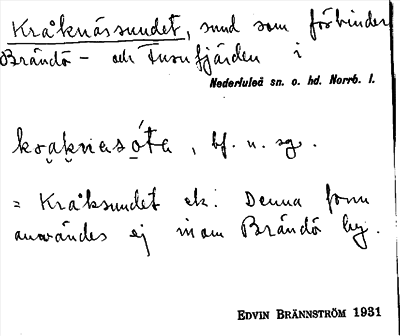 Kråknässundet, sund som förbinder
Brändö- och Furufjärden i
Nederluleå sn. o. hd. Norrb. l.
bf. n. sg.
= Kråksundet ek. Denna form
användes ej inom Brändö by.
EDVIN BRÄNNSTRÖM 1931